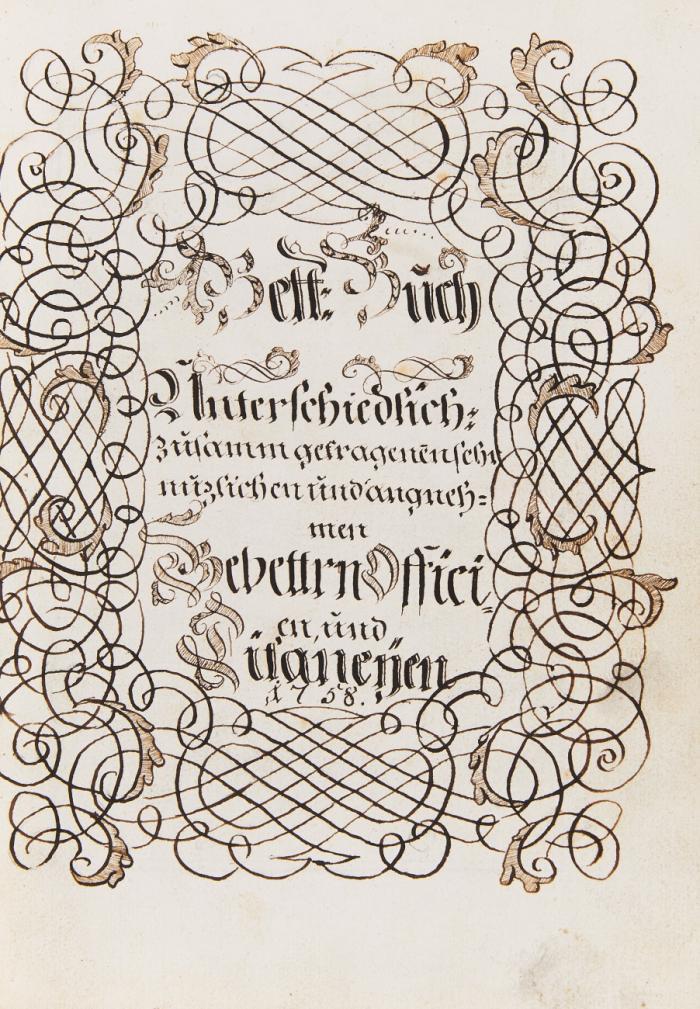 Bett: Buch
Unterschiedlich:
zusamm getragenen sehr
nuzlichen und angneh=
men
Gebettrn Offici=
en, und
Litaneyen
1758.